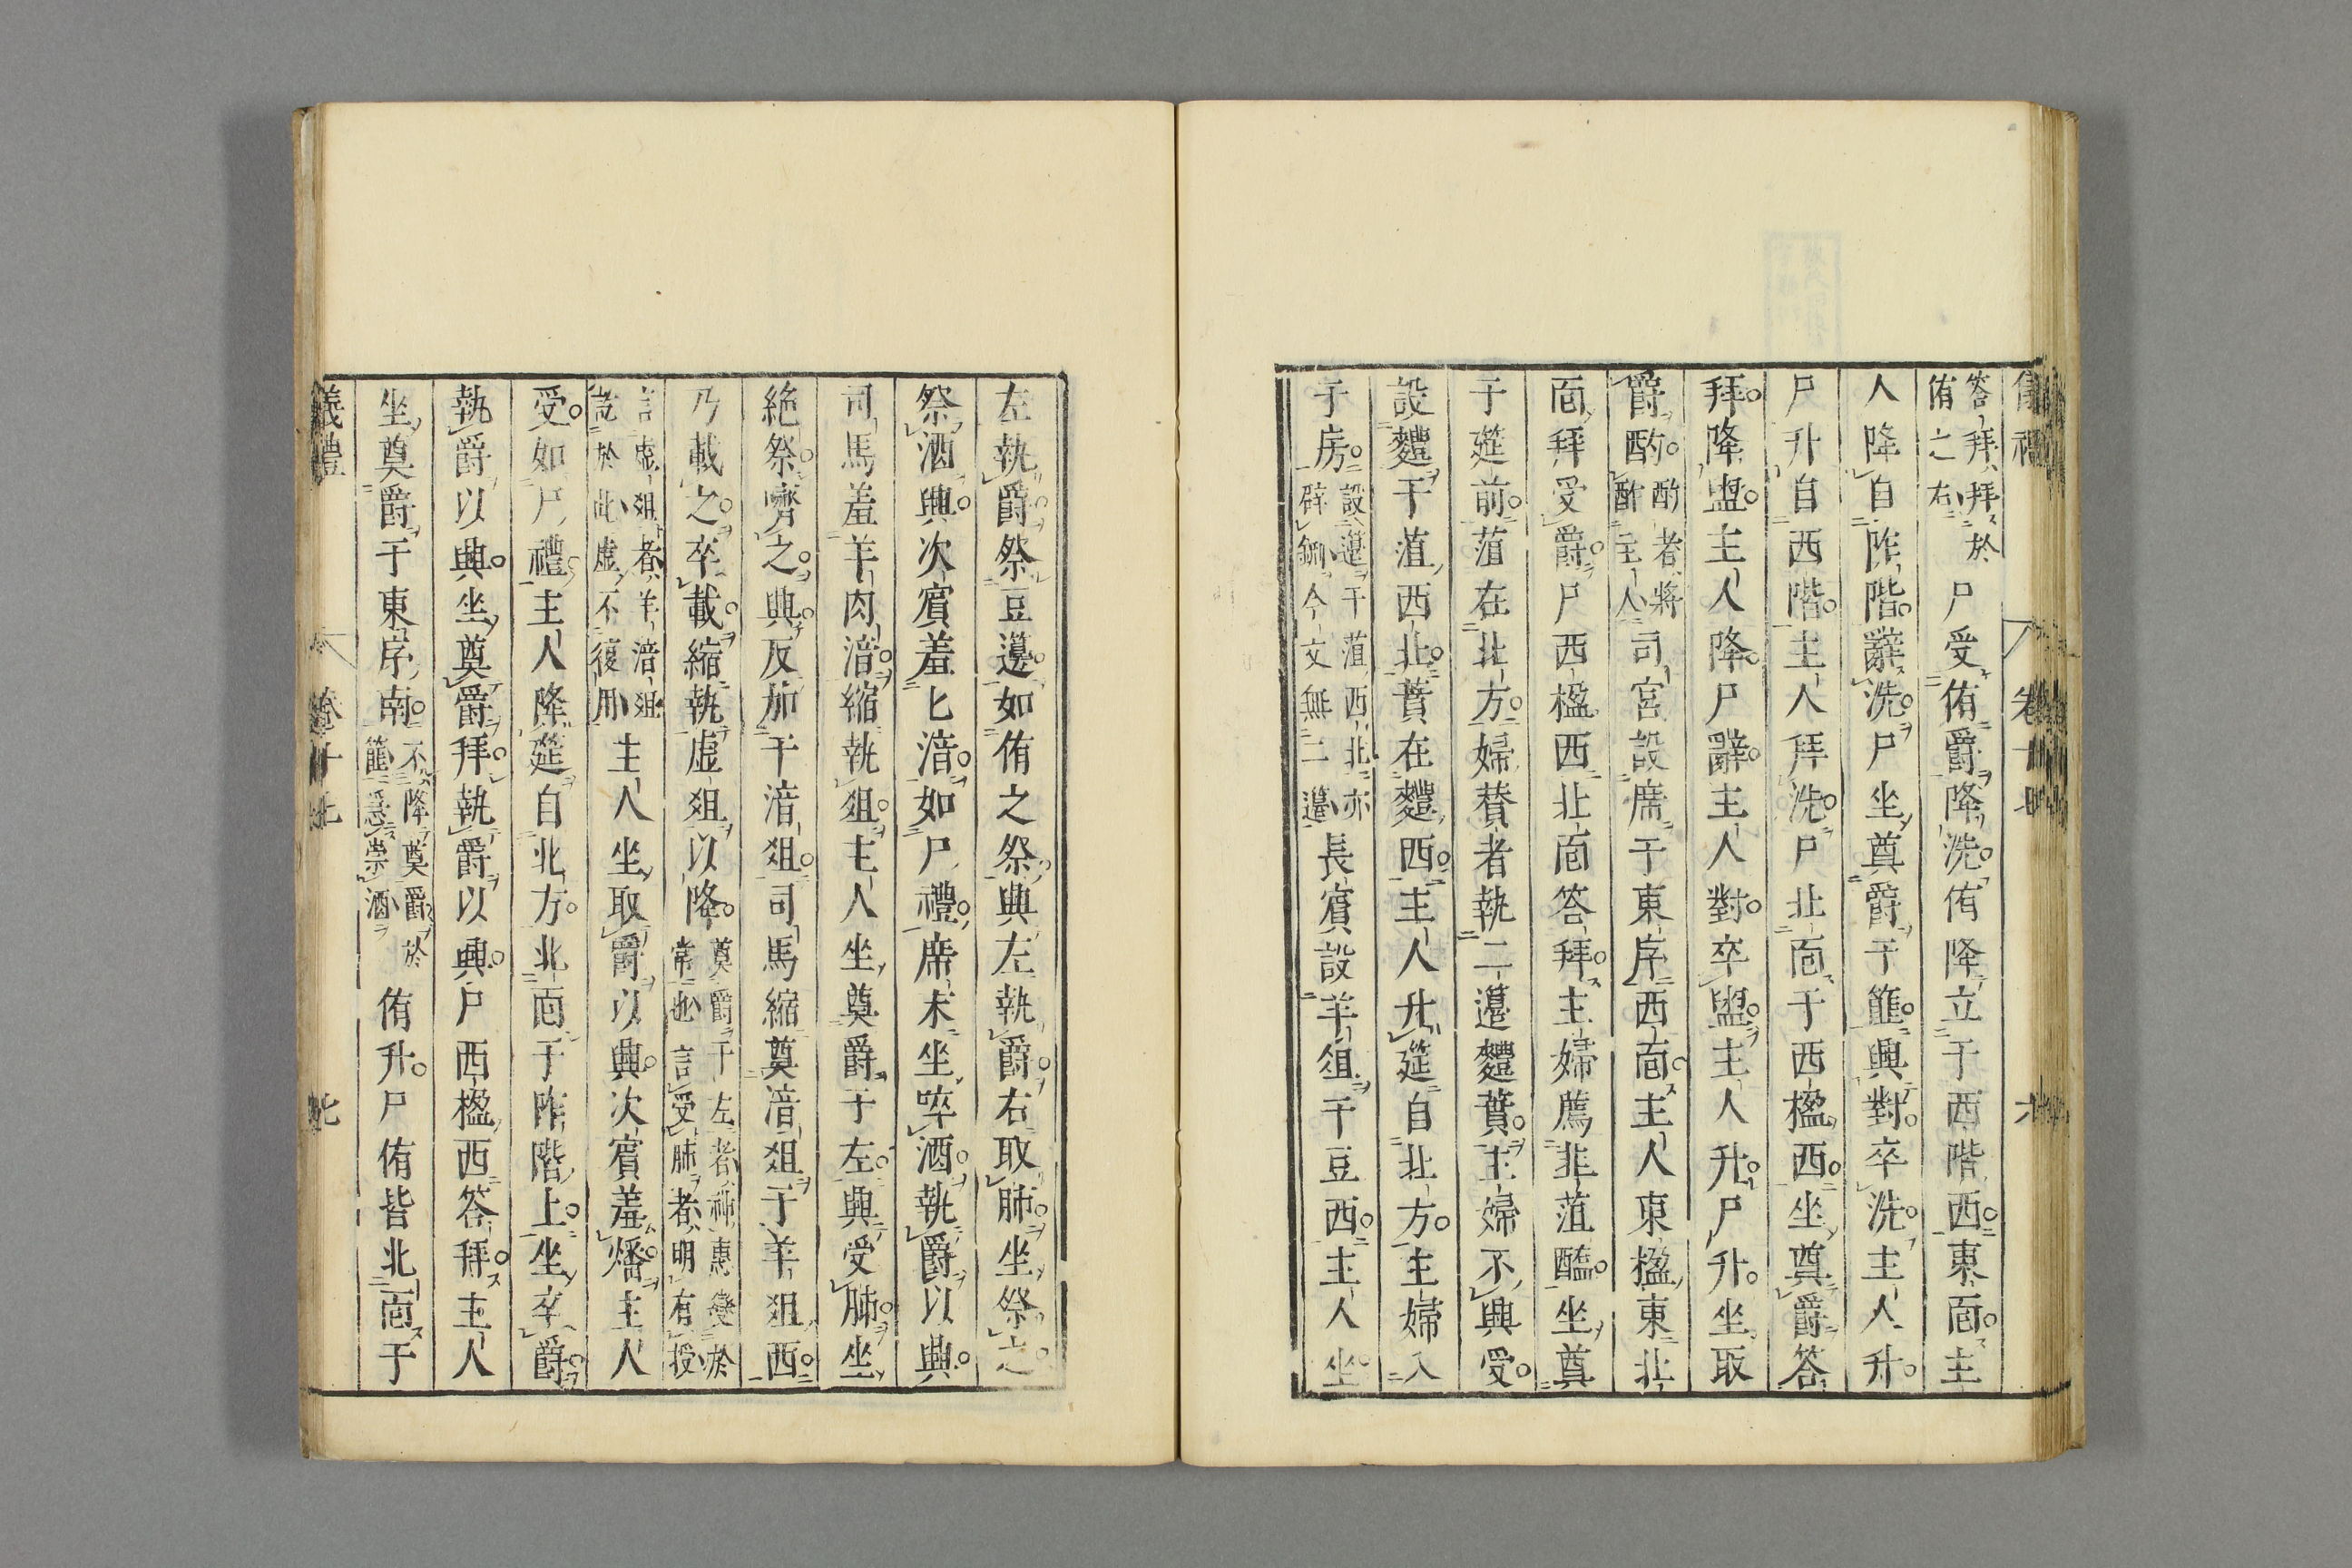 儀禮 卷十七 六
答拜拜於侑之右 尸受侑爵降洗侑降立于西階西東面主
人降自阼階辭洗尸坐奠爵于篚興對卒洗主人升
尸升自西階主人拜洗尸北面于西楹西坐奠爵答
拜降盥主人降尸辭主人對卒盥主人升尸升坐取
爵酌酌者將酢主人司宮設席于東序西面主人東楹東北
面拜受爵尸西楹西北面答拜主婦薦韭菹醢坐奠
于筵前菹在北方婦贊者執二籩麷蕡主婦不興受
設麷于菹西北蕡在麷西主人升筵自北方主婦入
于房設籩于菹西北亦辟鉶今文無二籩長賓設羊俎于豆西主人坐
左執爵祭豆籩如侑之祭興左執爵右取肺坐祭之
祭酒興次賓羞匕湆如尸禮席末坐啐酒執爵以興
司馬羞羊肉湆縮執俎主人坐奠爵于左興受肺坐
絕祭嚌之興反加于湆俎司馬縮奠湆俎于羊俎西
乃載之卒載縮執虛俎以降奠爵于左者神惠變於常也言受肺者明有授
言虛俎者羊湆俎訖於此虛不復用主人坐取爵以興次賓羞燔主人
受如尸禮主人降筵自北方北面于阼階上坐卒爵
執爵以興坐奠爵拜執爵以興尸西楹西答拜主人
坐奠爵于東序南不降奠爵於篚急崇酒侑升尸侑皆北面于
儀禮 卷十七